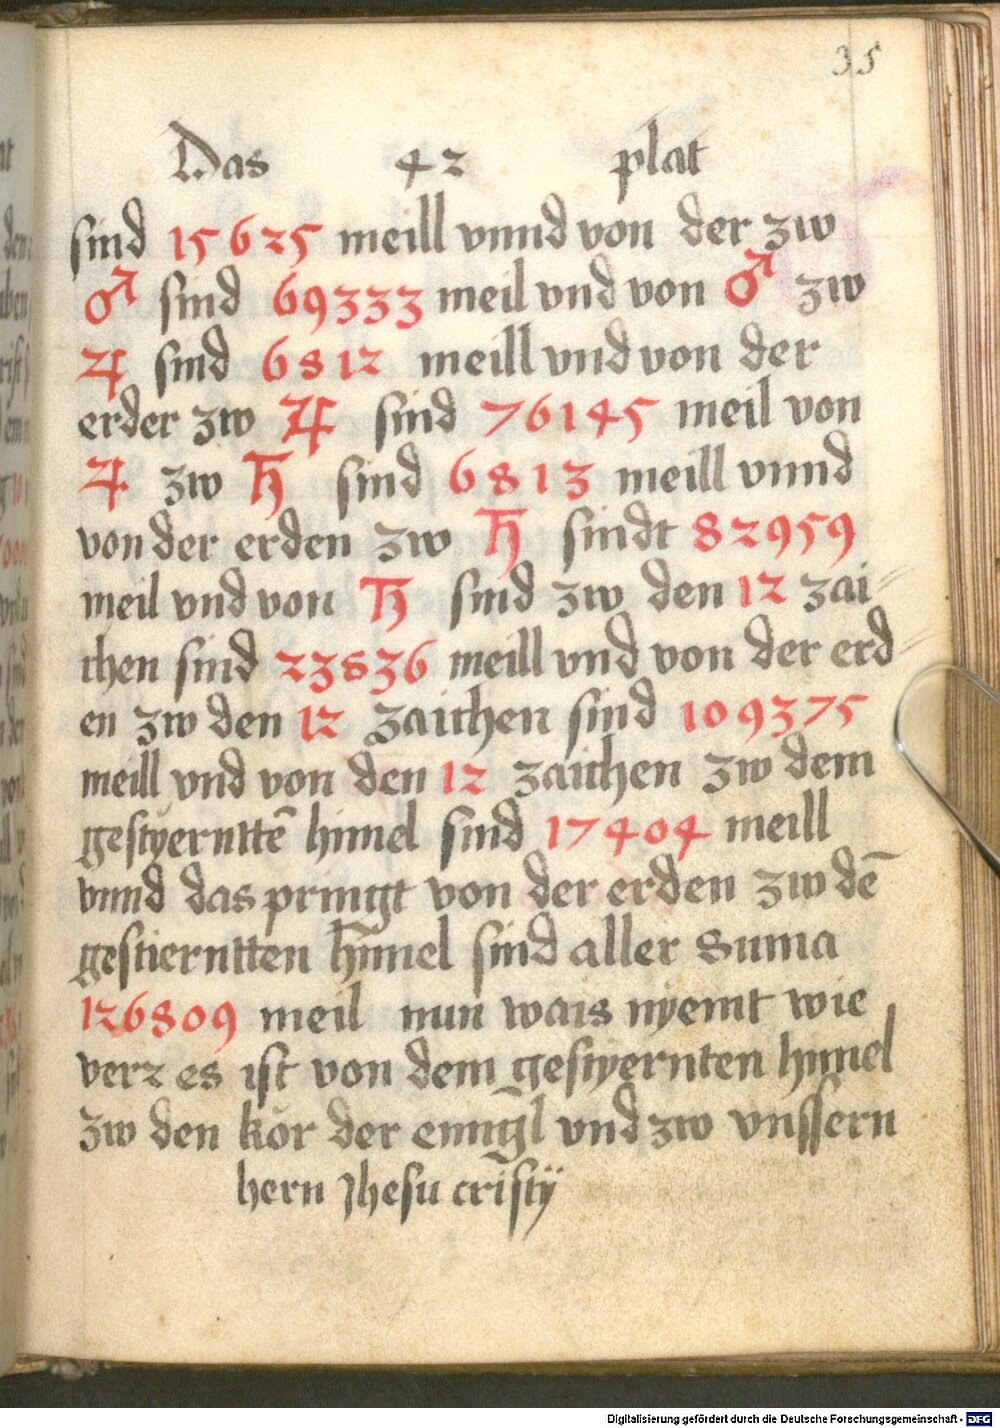 35
Das 42 plat
sind 15625 meill vnnd von der zw
♂ sind 69333 meil vnd von ♂ zw
♃ sind 6812 meill vnd von der
erder zw ♃ sind 76145 meil von
♃ zw ♄ sind 6813 meill vnnd
von der erden zw ♄ sindt 82959
meil vnd von ♄ sind zw den 12 zai=
chen sind 23836 meill vnd von der erd=
en zw den 12 zaichen sind 109375
meill vnd von den 12 zaichen zw dem
gestyernttē himel sind 17404 meill
vnnd das pringt von der erden zw dē
gestierntten himel sind aller Suma
126809 meil nun wais nyemt wie
verz es ist von dem gestyernten himel
zw den kör der enngl vnd zw vnssern
hern Jhesu cristÿ
Digitalisierung gefördert durch die Deutsche Forschungsgemeinschaft - DFG